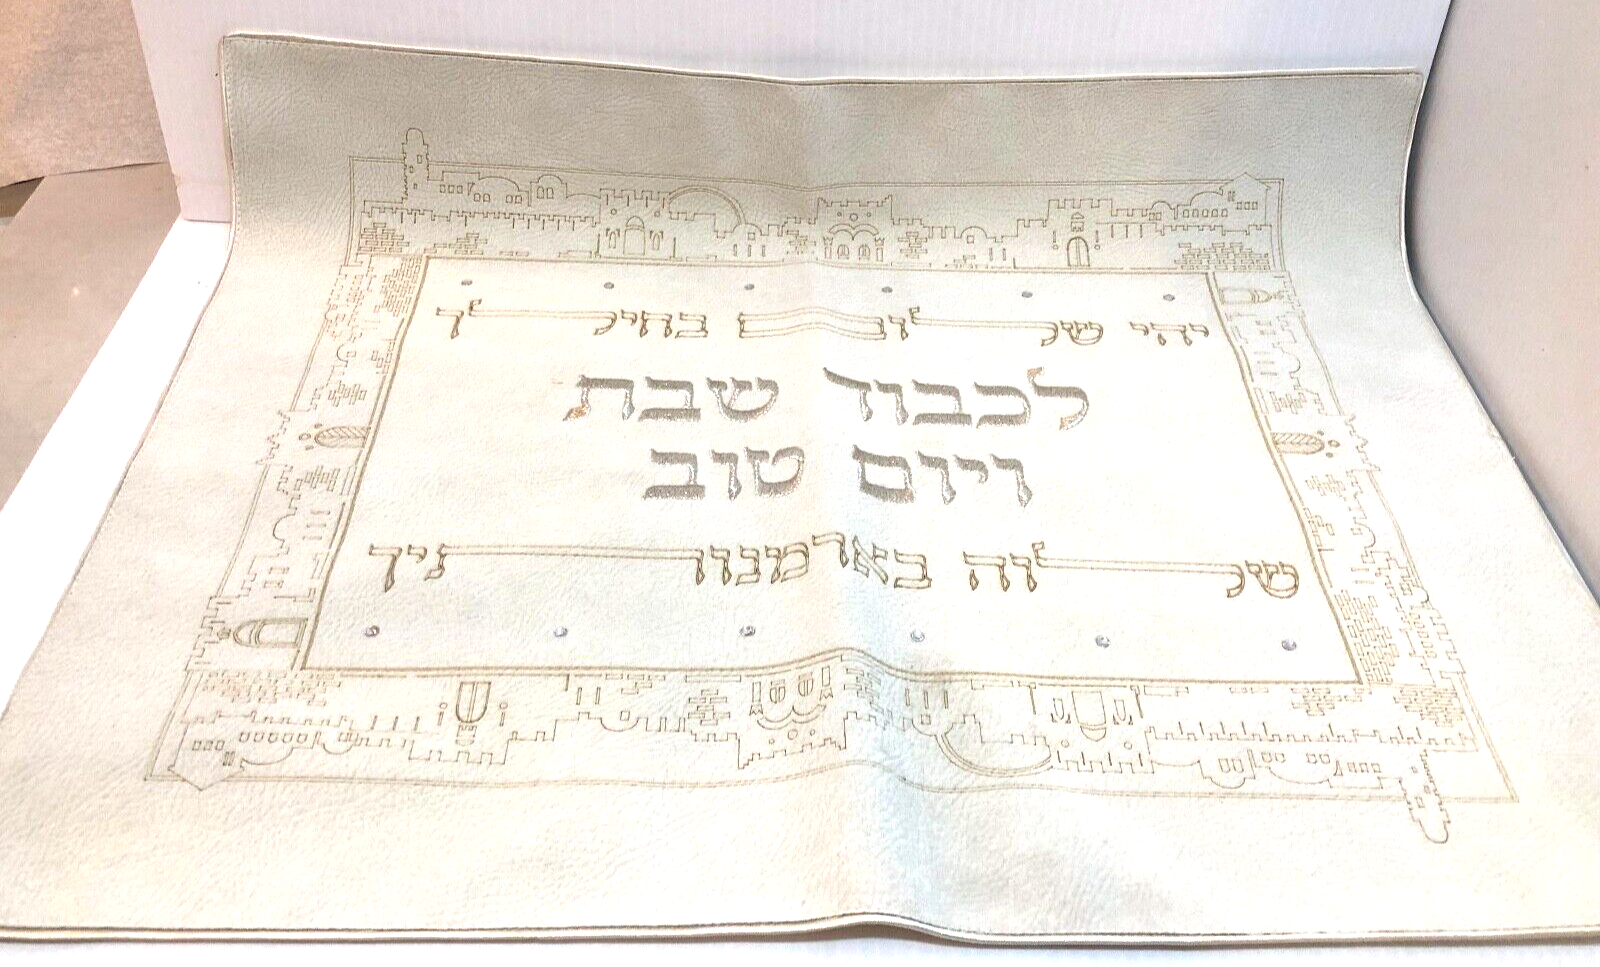 יהי שלום בחילך
לכבוד שבת
ויום טוב
שלוה בארמנותיך